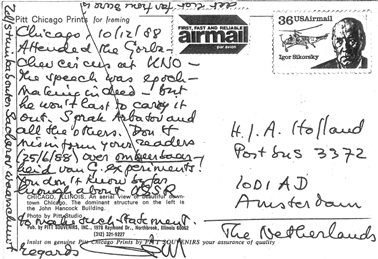 Pitt Chicago Prints for framing
Chicago 10/12/88
Attended the Gorba-
chev circus at UNO -
the speech was epoch-
making indeed - but
he won't last to carry it
out. Spoke Arbatov and
all the others. Don't
misinform your readers
(25/6/88) over onmeetbaar-
heid van G. experiments.
You don't know by far
enough about USSR
CHICAGO, ILLINOIS. An aerial view of beautiful down-
town Chicago. The dominant structure on the left is
the John Hancock Building.
Photo by Pitt Studio
to make such statement.
Pub. by PITT SOUVENIRS, INC., 1970 Raymond Dr., Northbrook, Illinois 60062
(312) 291-9277
Insist on genuine Pitt Chicago Prints by PITT SOUVENIRS your assurance of quality
regards
FIRST, FAST AND RELIABLE
airmail
par avion
36 USAirmail
Igor Sikorsky
H.J.A. Hofland
Postbus 3372
1001 AD
Amsterdam
The Netherlands